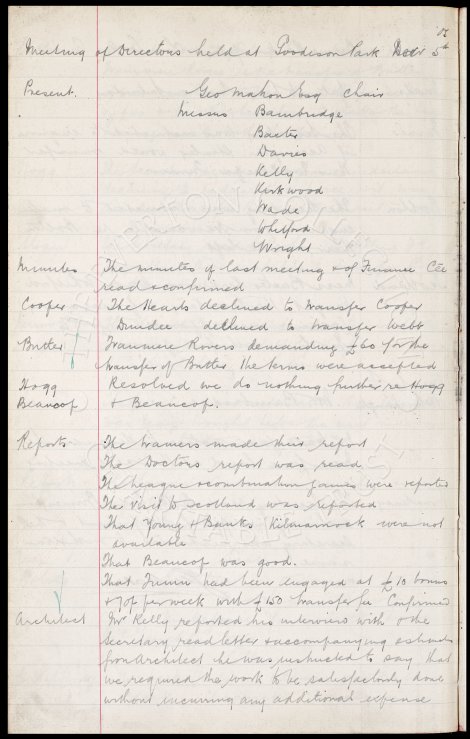 Meeting of Directors held at Goodison Park Decr 5th
Present. Geo Mahon Esq Chair
Messrs Bainbridge
Baxter
Davies
Kelly
Kirkwood
Wade
Whitford
Wright
Minutes The minutes of last meeting & of Finance Cee
read & confirmed
Cooper The Hearts declined to transfer Cooper
Dundee declined to transfer Webb
Butler Tranmere Rovers demanding £60 for the
transfer of Butler the terms were accepted
Hogg Resolved we do nothing further re Hogg
Beaucop & Beaucop.
Reports The trainers made their report
The Doctors report was read
The League & combination games were reported
The visit to Scotland was reported
That Young & Banks Kilmarnock were not
available
That Beaucop was good.
That had been engaged at £10 bonus
& 70/ per week with £150 transfer fee Confirmed
Architect Mr Kelly reported his interviews with & the
Secretary read letter & accompanying
from Architect he was instructed to say that
we required the work to be satisfactorily done
without incurring any additional expense